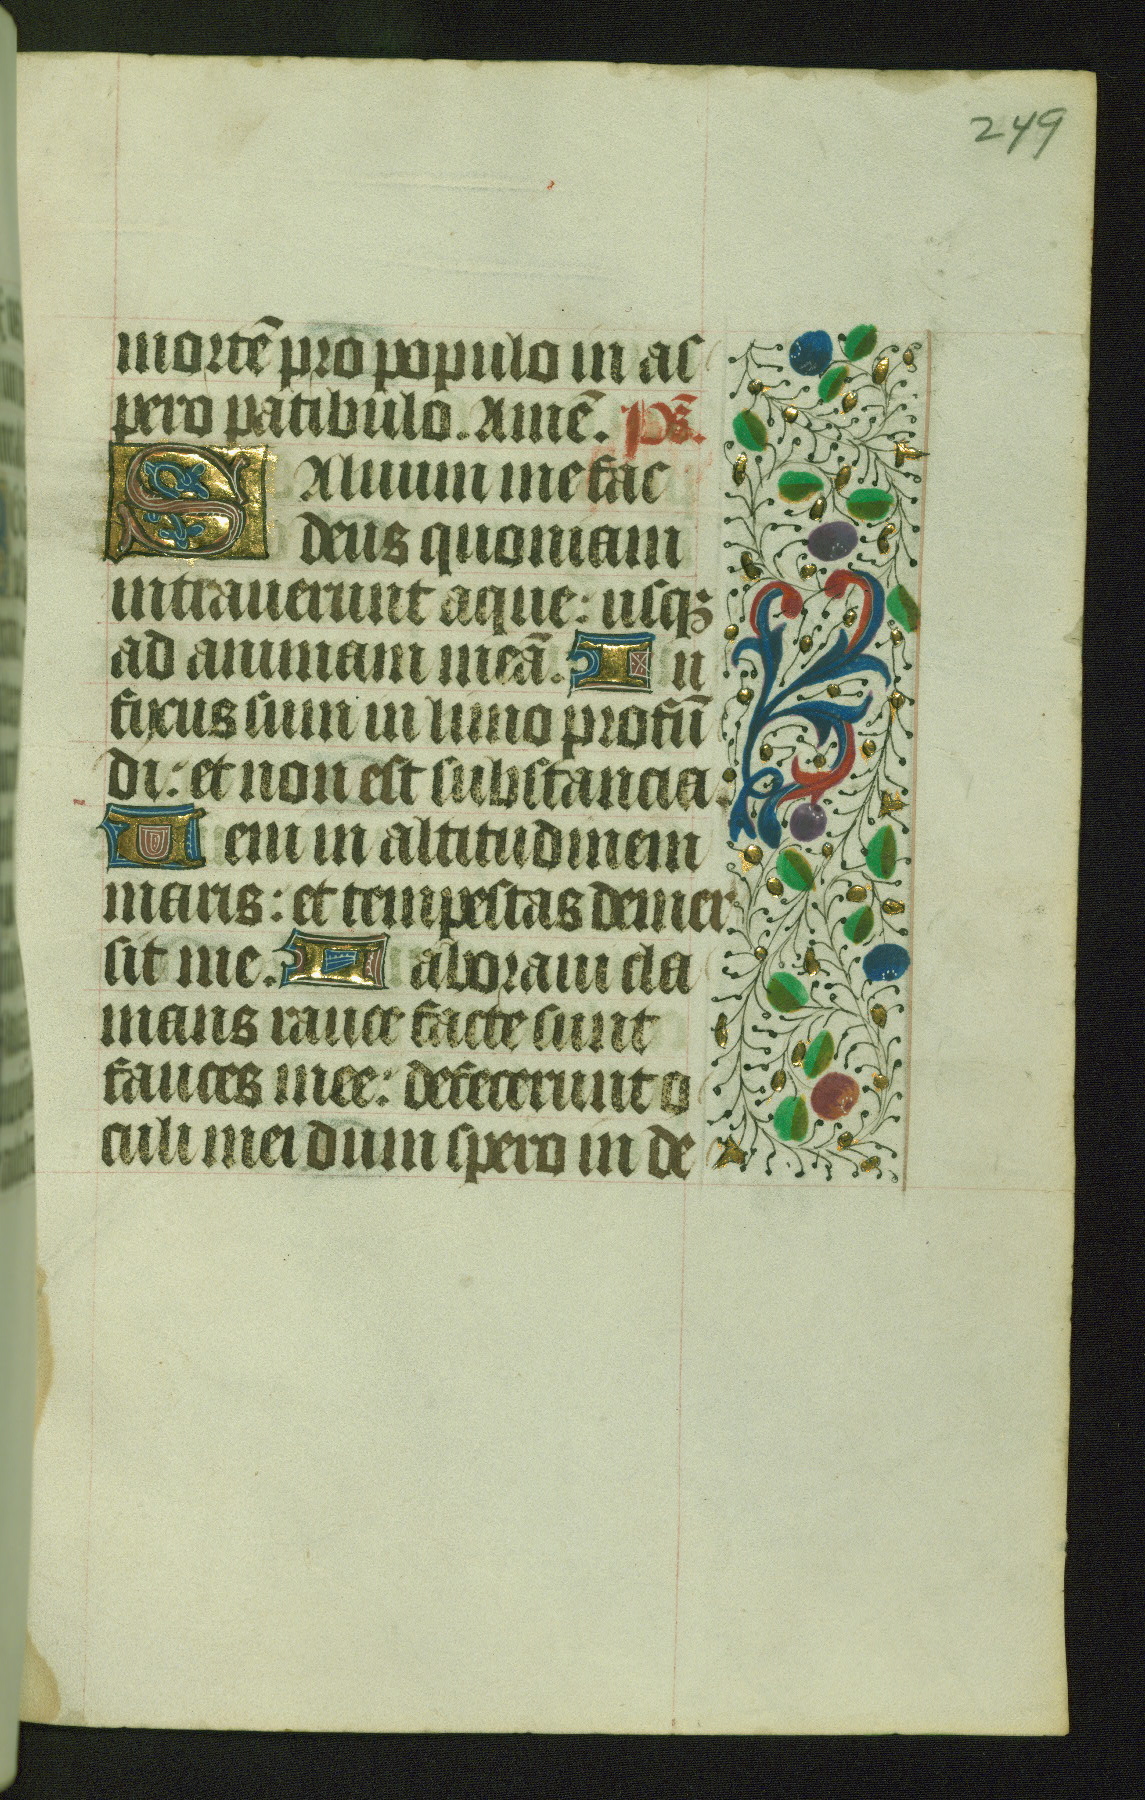 249
mortē pro populo in as
pero patibulo. Amē. ps̄.
Saluum me fac
deus quoniam
intrauerunt aque: usqꝫ
ad animam meā. In
fixus sum in limo profū
di: et non est substancia.
Ueni in altitudinem
maris: et tempestas demer
sit me. Laboraui cla
mans rauce facte sunt
fauces mee: defecerunt o
culi mei dum spero in de